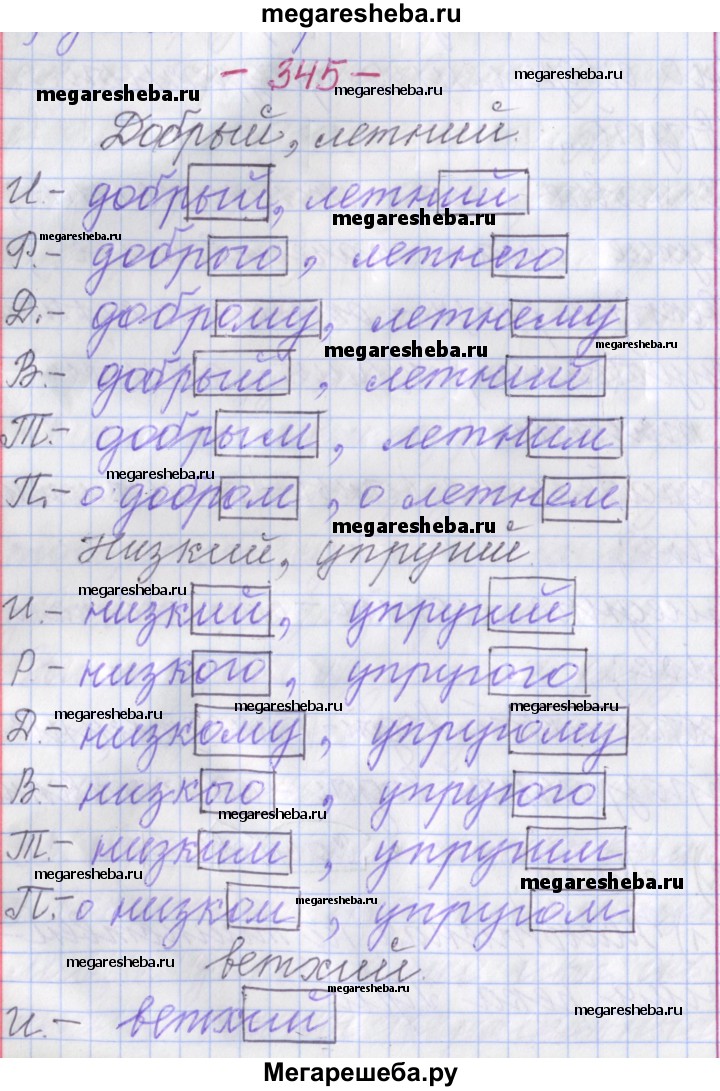 megaresheba.ru
- 345 -
megaresheba.ru
megaresheba.ru
megaresheba.ru
Добрый, летний.
И.- добрый, летний
megaresheba.ru
megaresheba.ru
Р.- доброго, летнего
Д.- доброму, летнему
megaresheba.ru
megaresheba.ru
В.- добрый, летний
Т.- добрым, летним
megaresheba.ru
П.- о добром, о летнем
megaresheba.ru
Низкий, упругий
megaresheba.ru
megaresheba.ru
И.- низкий, упругий
Р.- низкого, упругого
megaresheba.ru
megaresheba.ru
megaresheba.ru
Д.- низкому, упругому
В.- низкыго, упругого
megaresheba.ru
Т.- низким, упругим
megaresheba.ru
megaresheba.ru
megaresheba.ru
П.- о низком, упругом
megaresheba.ru
megaresheba.ru
ветхий.
megaresheba.ru
megaresheba.ru
И.- ветхий
Мегарешеба.ру